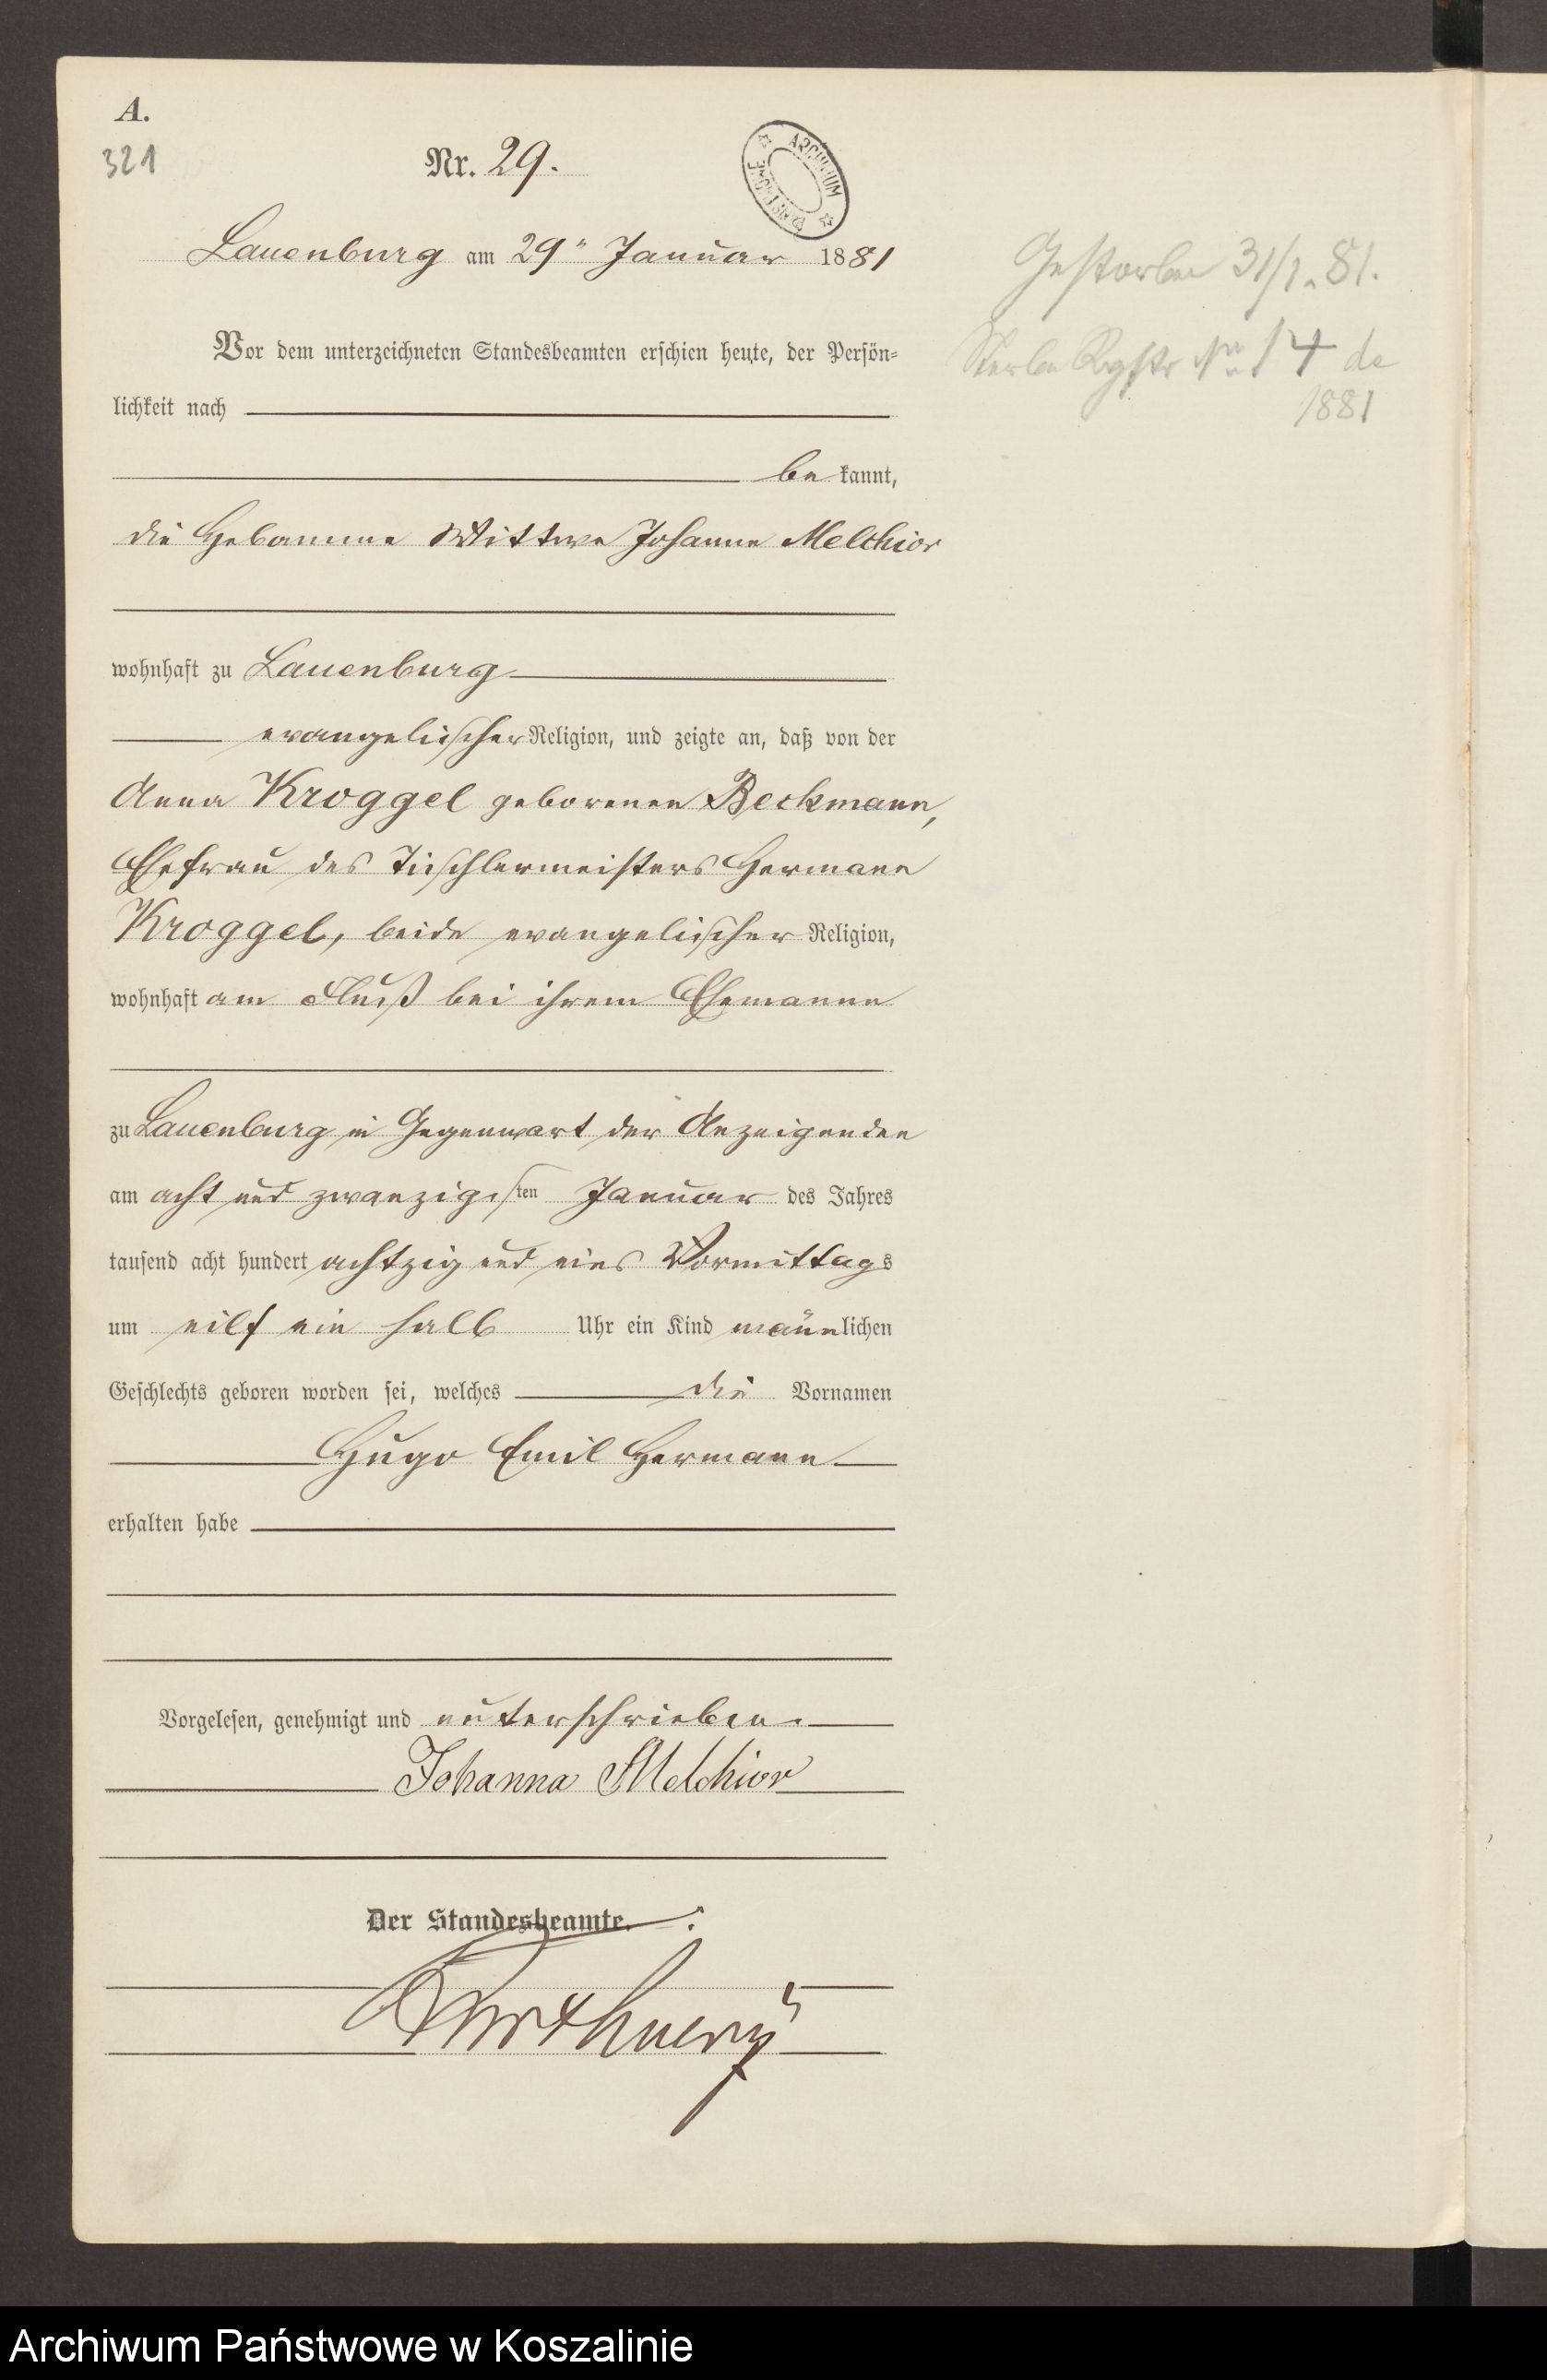 A.
321
Nr. 29.
ARCHIWUM
PAŃSTWOWE
Lauenburg am 29ⁿ Januar 1881
Gestorben 31/1. 81.
Sterbe Regstr No 14 de
1881
Vor dem unterzeichneten Standesbeamten erschien heute, der Persön-
lichkeit nach
be kannt,
die Hebamme Wittwe Johanne Melchior
wohnhaft zu Lauenburg
evangelischer Religion, und zeigte an, daß von der
Anna Kroggel geborenen Beckmann,
Ehefrau des Tischlermeisters Hermann
Kroggel, beide evangelischer Religion,
wohnhaft am Fluß bei ihrem Ehemanne
zu Lauenburg in Gegenwart der Anzeigenden
am acht und zwanzigsten Januar des Jahres
tausend acht hundert achtzig und eins Vormittags
um eilf ein halb Uhr ein Kind männlichen
Geschlechts geboren worden sei, welches die Vornamen
Hugo Emil Hermann
erhalten habe
Vorgelesen, genehmigt und unterschrieben.
Johanna Melchior
Der Standesbeamte.
Archiwum Państwowe w Koszalinie